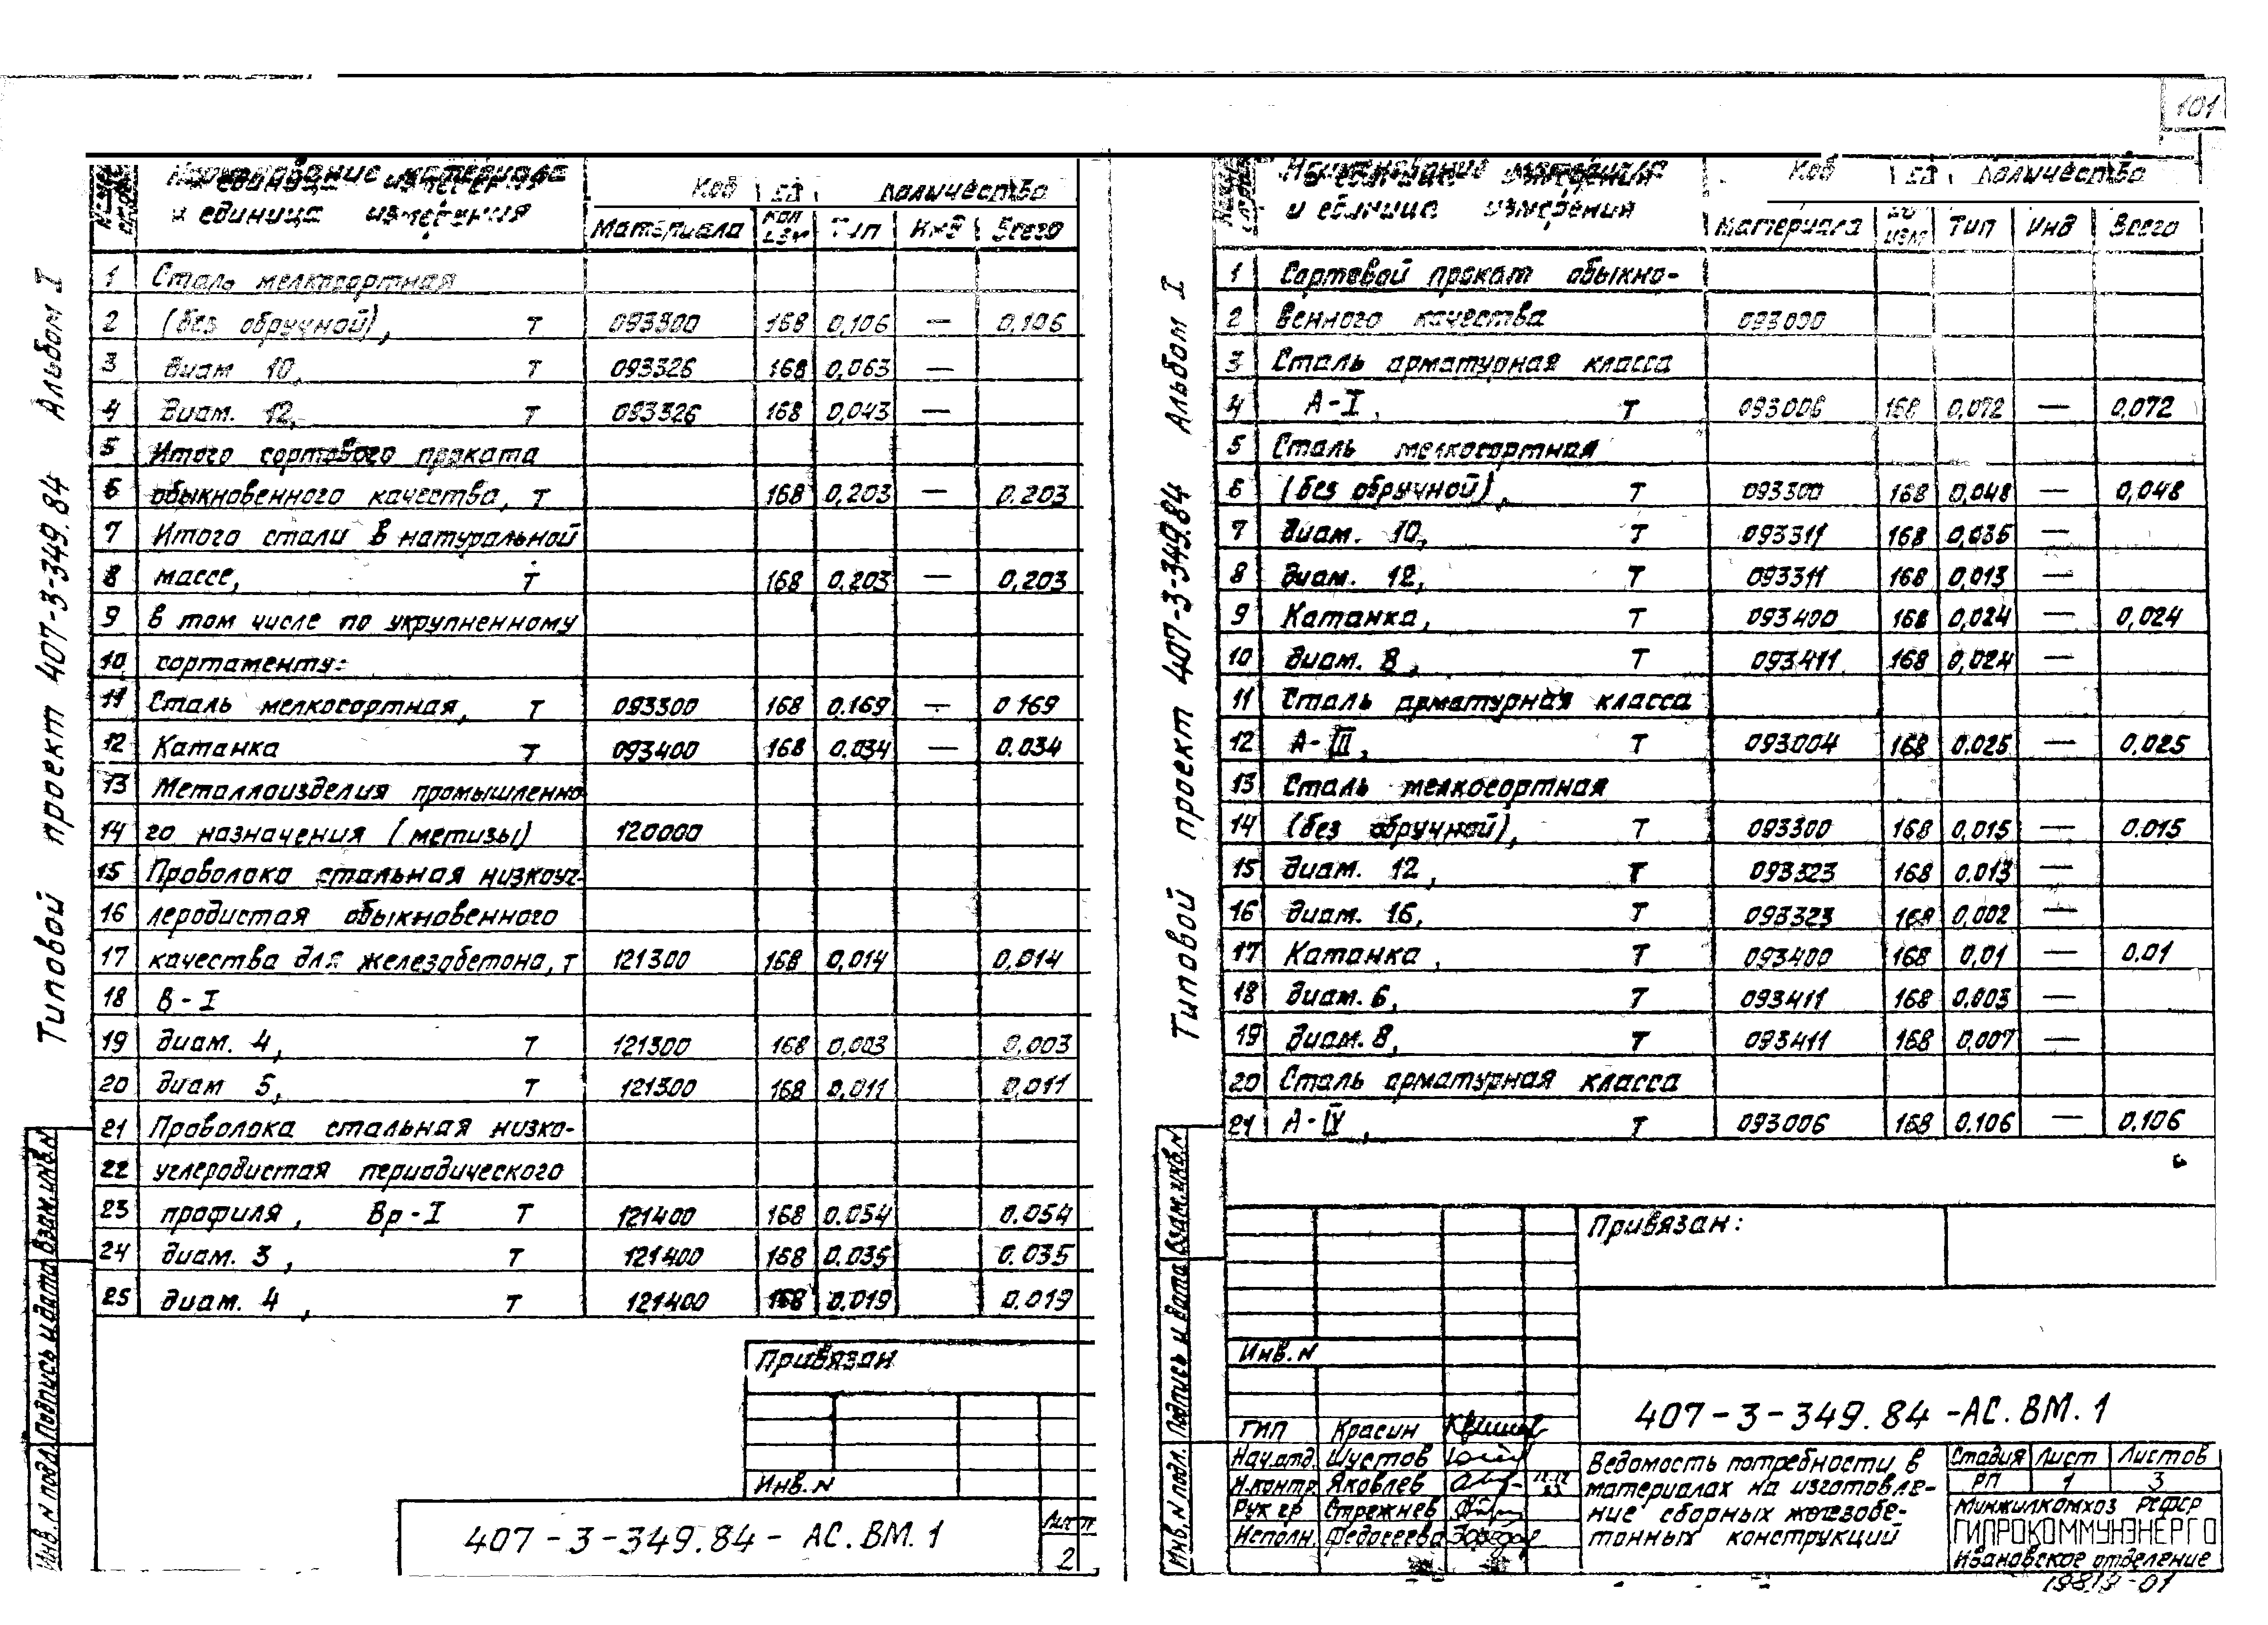 101
Типовой проект 407-3-349.84 Альбом I
Наименование материала и единица измерения Код Количество
Материала Тип Инд Всего
1 Сталь мелкосортная
2 (без обручной), Т 093300 168 0,106 — 0,106
3 диам 10, Т 093326 168 0,063 —
4 диам. 12, Т 093326 168 0,043 —
5 Итого сортового проката
6 обыкновенного качества, Т 168 0,203 — 0.203
7 Итого стали в натуральной
8 массе, Т 168 0.203 — 0.203
9 в том числе по укрупненному
10 сортаменту:
11 Сталь мелкосортная, Т 093300 168 0.169 — 0 169
12 Катанка Т 093400 168 0.034 — 0.034
13 Металлоизделия промышленно
14 го назначения (метизы) 120000
15 Проволока стальная низкоуг-
16 леродистая обыкновенного
17 качества для железобетона, т 121300 168 0,014 0,014
18 В-I
19 диам. 4, Т 121300 168 0,003 0,003
20 диам 5, Т 121300 168 0,011 0,011
21 Проволока стальная низко-
22 углеродистая периодического
23 профиля, Вр-I Т 121400 168 0.054 0.054
24 диам. 3, Т 121400 168 0.035 0.035
25 диам. 4, Т 121400 168 0.019 0.019
Привязан
Инв. N
407-3-349.84- АС.ВМ.1
Лист
2
Инв. N подл. Подпись и дата Взам. инв. N
Типовой проект 407-3-349.84 Альбом I
Наименование материала и единица измерения Код Количество
Материала Тип Инд Всего
1 Сортовой прокат обыкно-
2 венного качества 093000
3 Сталь арматурная класса
4 А-I, Т 093006 168 0,072 — 0,072
5 Сталь мелкосортная
6 (без обручной), Т 093300 168 0,048 — 0,048
7 диам. 10, Т 093311 168 0,035 —
8 диам. 12, Т 093311 168 0,013 —
9 Катанка, Т 093400 168 0,024 — 0,024
10 диам. 8, Т 093411 168 0,024 —
11 Сталь арматурная класса
12 А-III, Т 093004 168 0.025 — 0.025
13 Сталь мелкосортная
14 (без обручной), Т 093300 168 0,015 — 0.015
15 диам. 12, Т 093323 168 0.013 —
16 диам. 16, Т 093323 168 0,002 —
17 Катанка, Т 093400 168 0,01 — 0.01
18 диам. 6, Т 093411 168 0.003 —
19 диам. 8, Т 093411 168 0,007 —
20 Сталь арматурная класса
21 А-IV, Т 093006 168 0.106 — 0.106
Привязан:
Инв. N
407-3-349.84-АС.ВМ.1
ГИП Красин
Нач.отд. Шустов
Н.контр. Яковлев
Рук гр Стрежнев
Исполн. Федосеева
Ведомость потребности в
материалах на изготовле-
ние сборных железобе-
тонных конструкций
Стадия Лист Листов
РП 1 3
Минжилкомхоз РСФСР
ГИПРОКОММУНЭНЕРГО
Ивановское отделение
19819-01
Инв. N подл. Подпись и дата Взам. инв. N